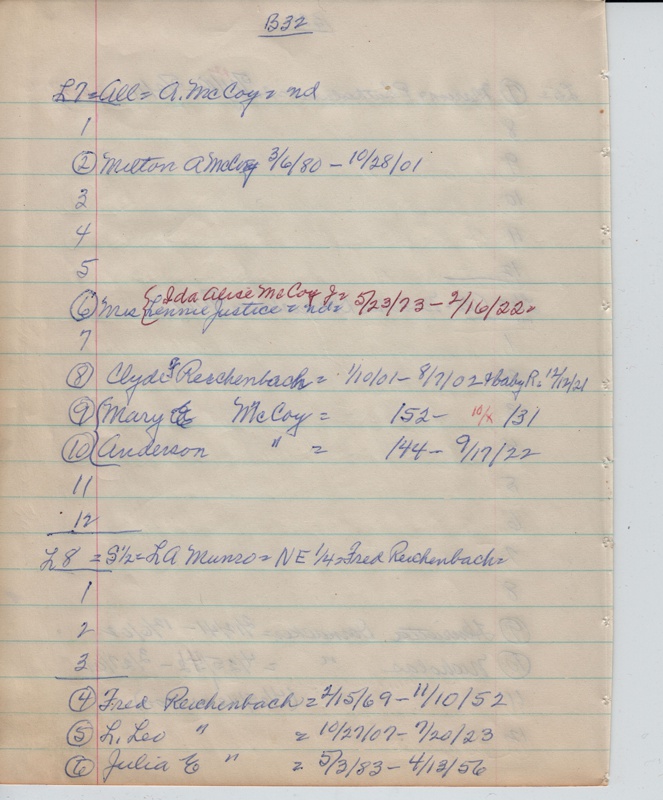 B32
L7 = All = A. McCoy = nd
1
② Milton A McCoy 3/6/80 - 10/28/01
3
4
5
{Ida Alise McCoy J= 5/23/73 - 2/16/22=
⑥ Mrs Lennie Justice = nd=
7
⑧ Clyde F Reichenbach = 1/10/01 - 8/7/02 + baby R. 12/12/21
⑨ Mary E McCoy = 1852 - 10/ /31
⑩ Anderson " = 1844 - 9/17/22
11
12
L8 = S 1/2 = L A Munro = NE 1/4 = Fred Reichenbach =
1
2
3
④ Fred Reichenbach = 2/15/69 - 11/10/52
⑤ L. Leo " = 10/27/07 - 7/20/23
⑥ Julia E " = 5/3/83 - 4/13/56